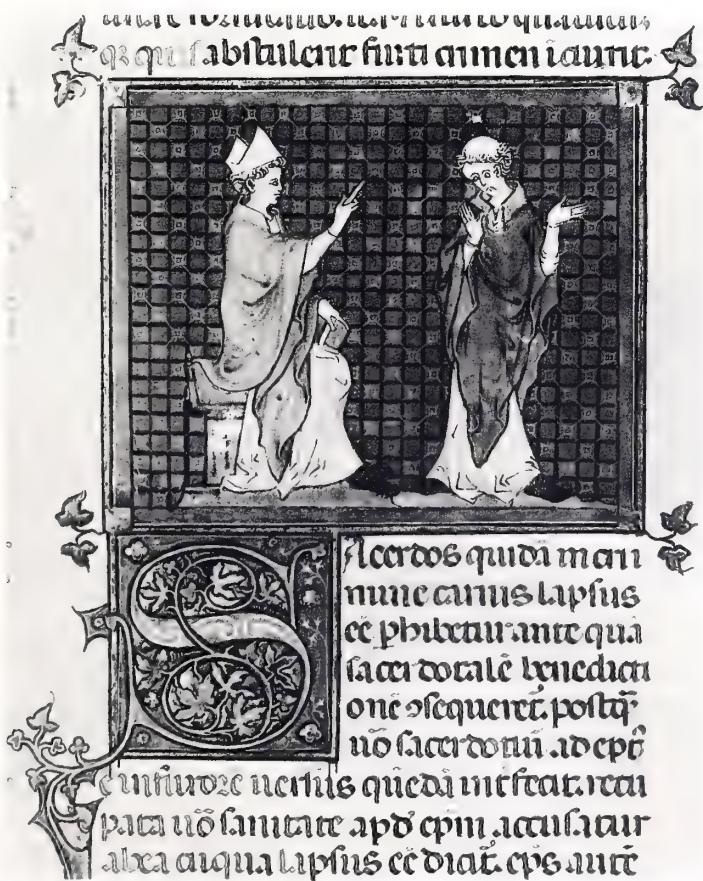 qꝫ qui abstulerit furti crimen icurrit.
Sacerdos quidā in cri
mine carnis lapsus
eē phibetur ante quā
sacerdotalē benedicti
onē ɔsequeret. postq̄
uō sacerdotiū adept᷒
ē in furore uersus quēdā int̄fecit. recu
pata uō sanitate apd̄ ep̄m accusatur
lapsus eē dicit. ep̄s aūtē